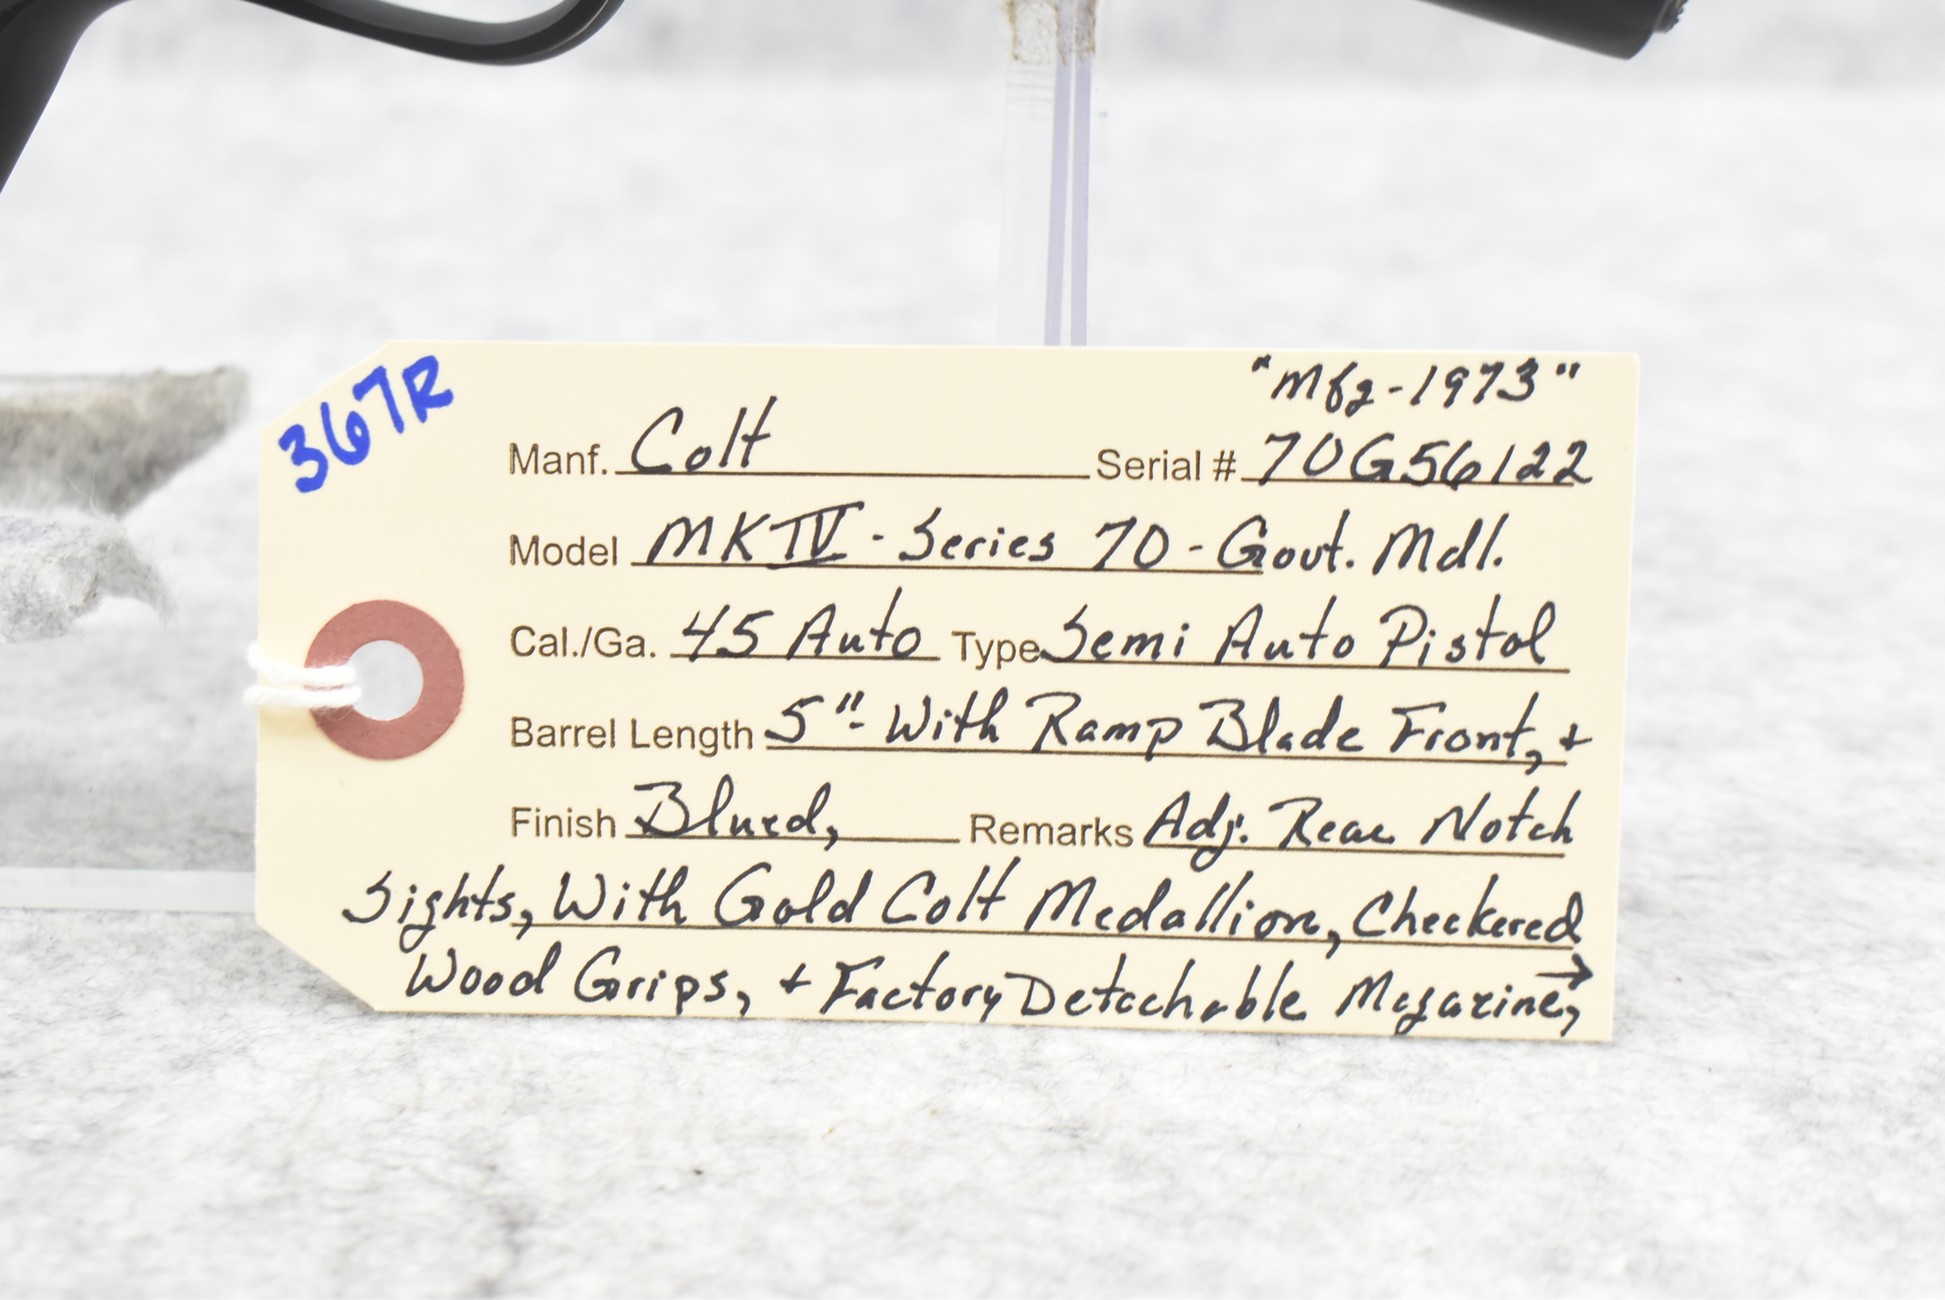 367R
"Mfg-1973"
Manf. Colt Serial # 70G56122
Model MK IV - Series 70 - Govt. Mdl.
Cal./Ga. 45 Auto Type Semi Auto Pistol
Barrel Length 5"- With Ramp Blade Front, +
Finish Blued, Remarks Adj. Rear Notch
Sights, With Gold Colt Medallion, Checkered
Wood Grips, + Factory Detachable Magazine, →